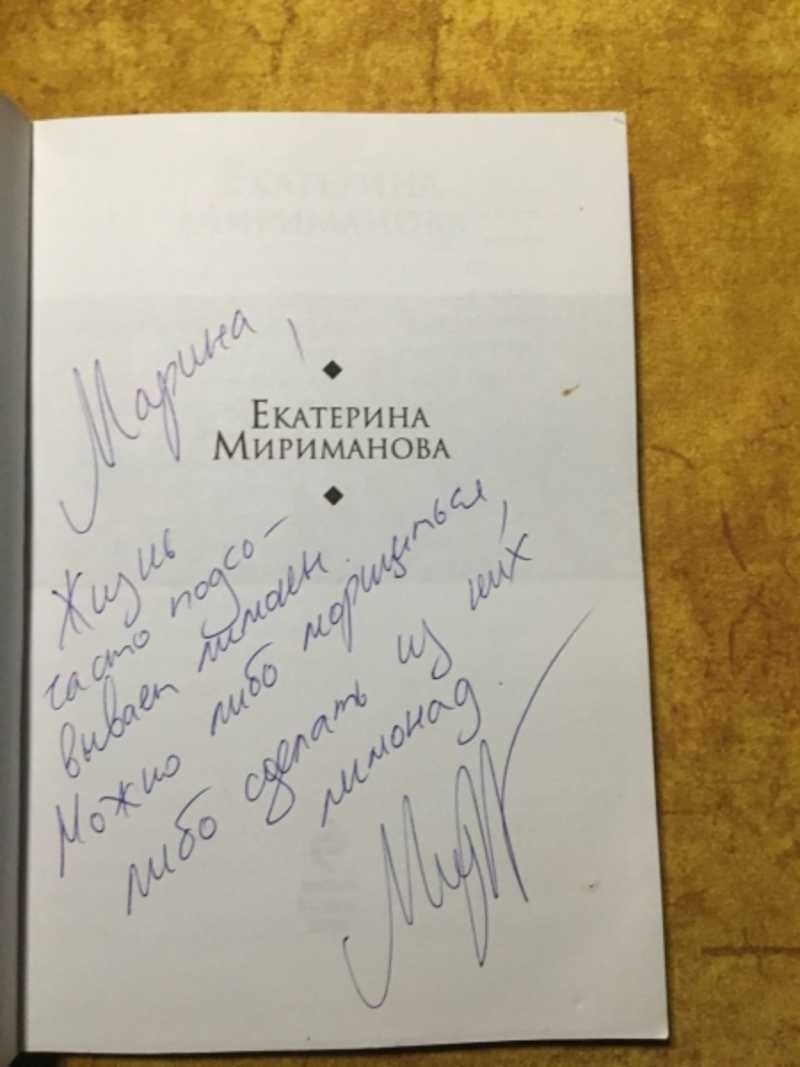 Марина!
ЕКАТЕРИНА
МИРИМАНОВА
Жизнь
часто подсо-
вывает лимоны.
Можно либо морщиться,
либо сделать из них
лимонад.